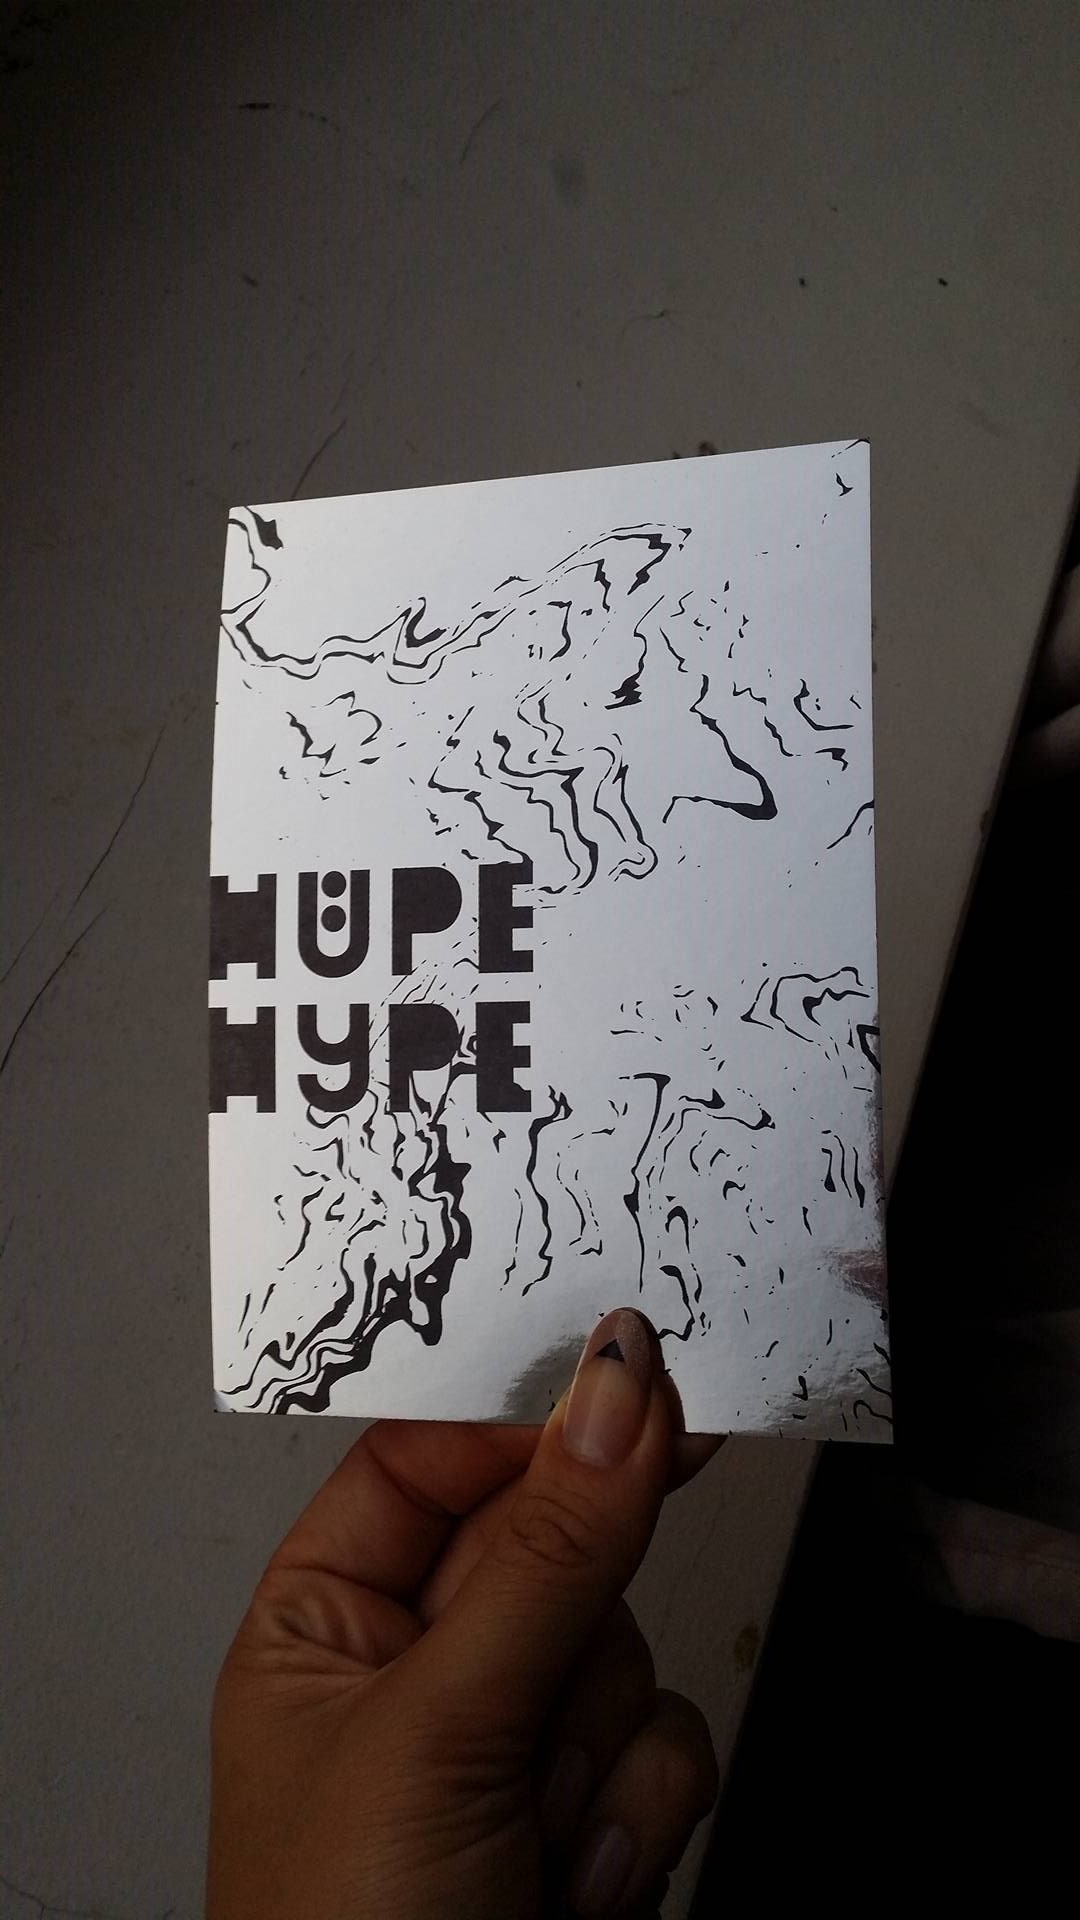 HÜPE
HYPE